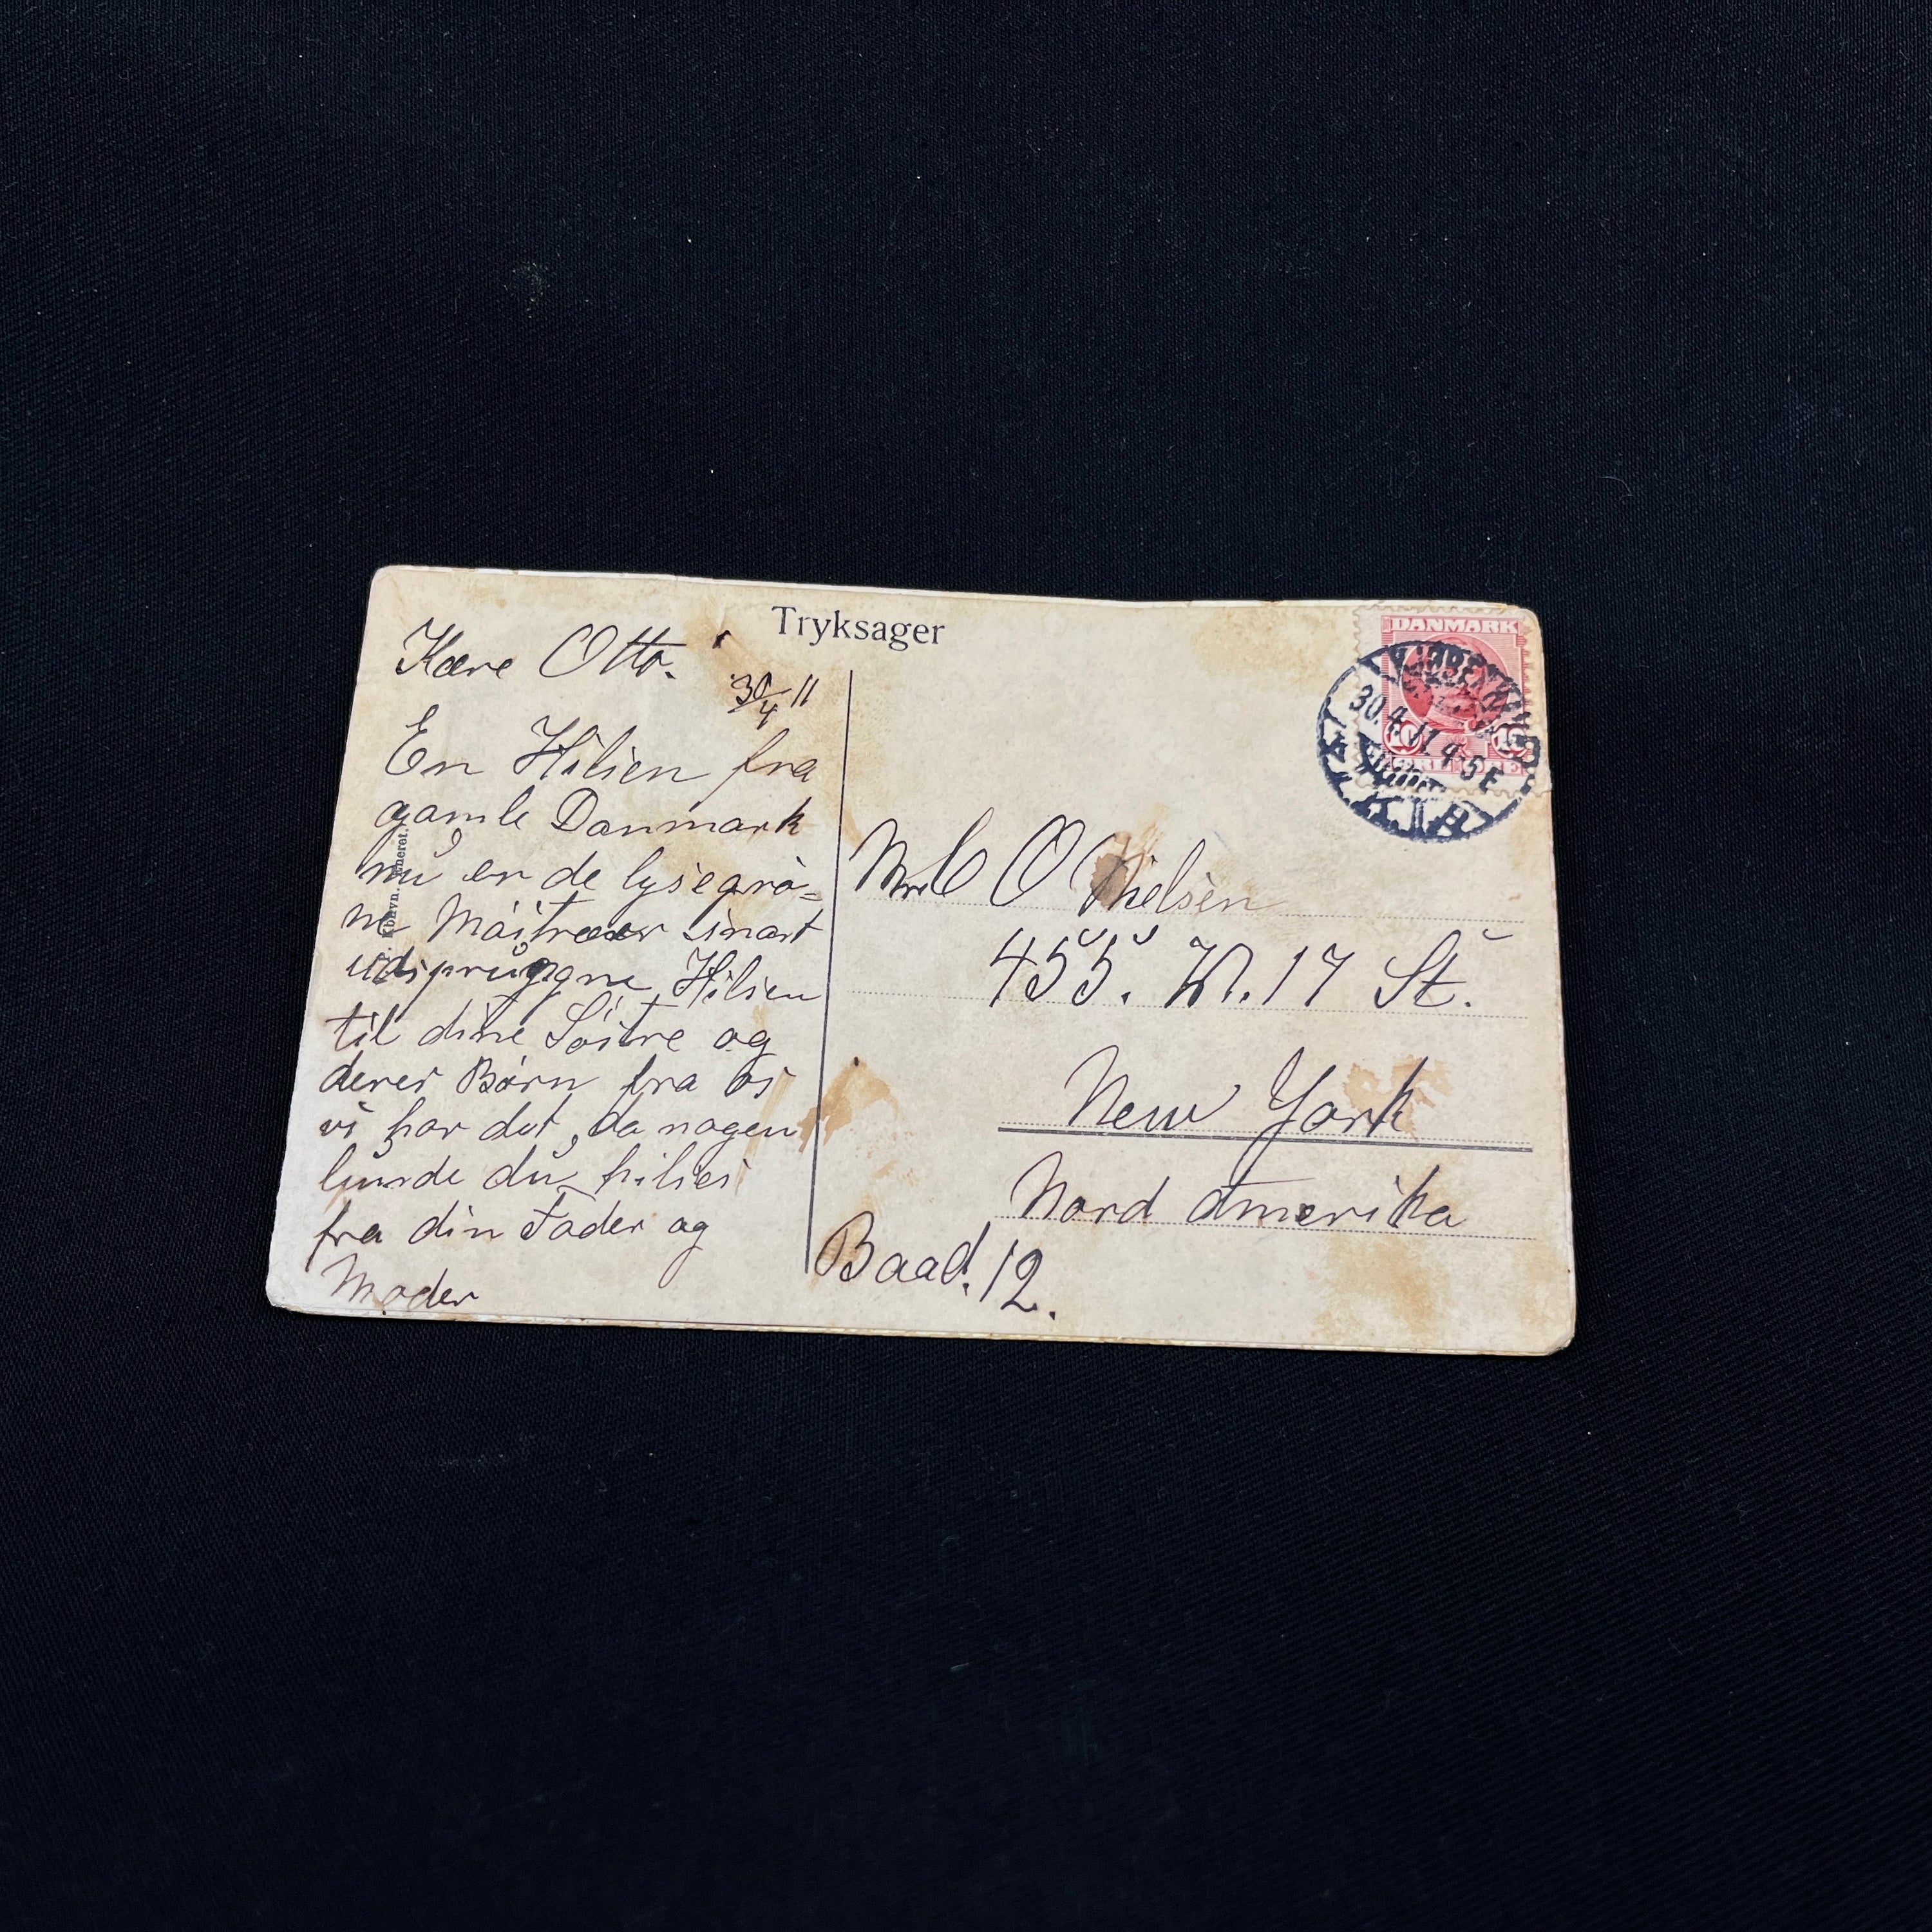 Tryksager
Kære Otto.
30/4 11
En Hilsen fra
gamle Danmark
nu er de lysegrø=
ne Måitræer snart
udsprugne Hilsen
til dine Søstre og
deres Børn fra os
vi har det, da nogen
lunde du hilses
fra din Fader og
Moder
DANMARK
KJØBENHAVN
30.4.11.4-5E
10 10
Mr C O Nielsen
455. W. 17 St.
New York
Nord Amerika
Baad. 12.